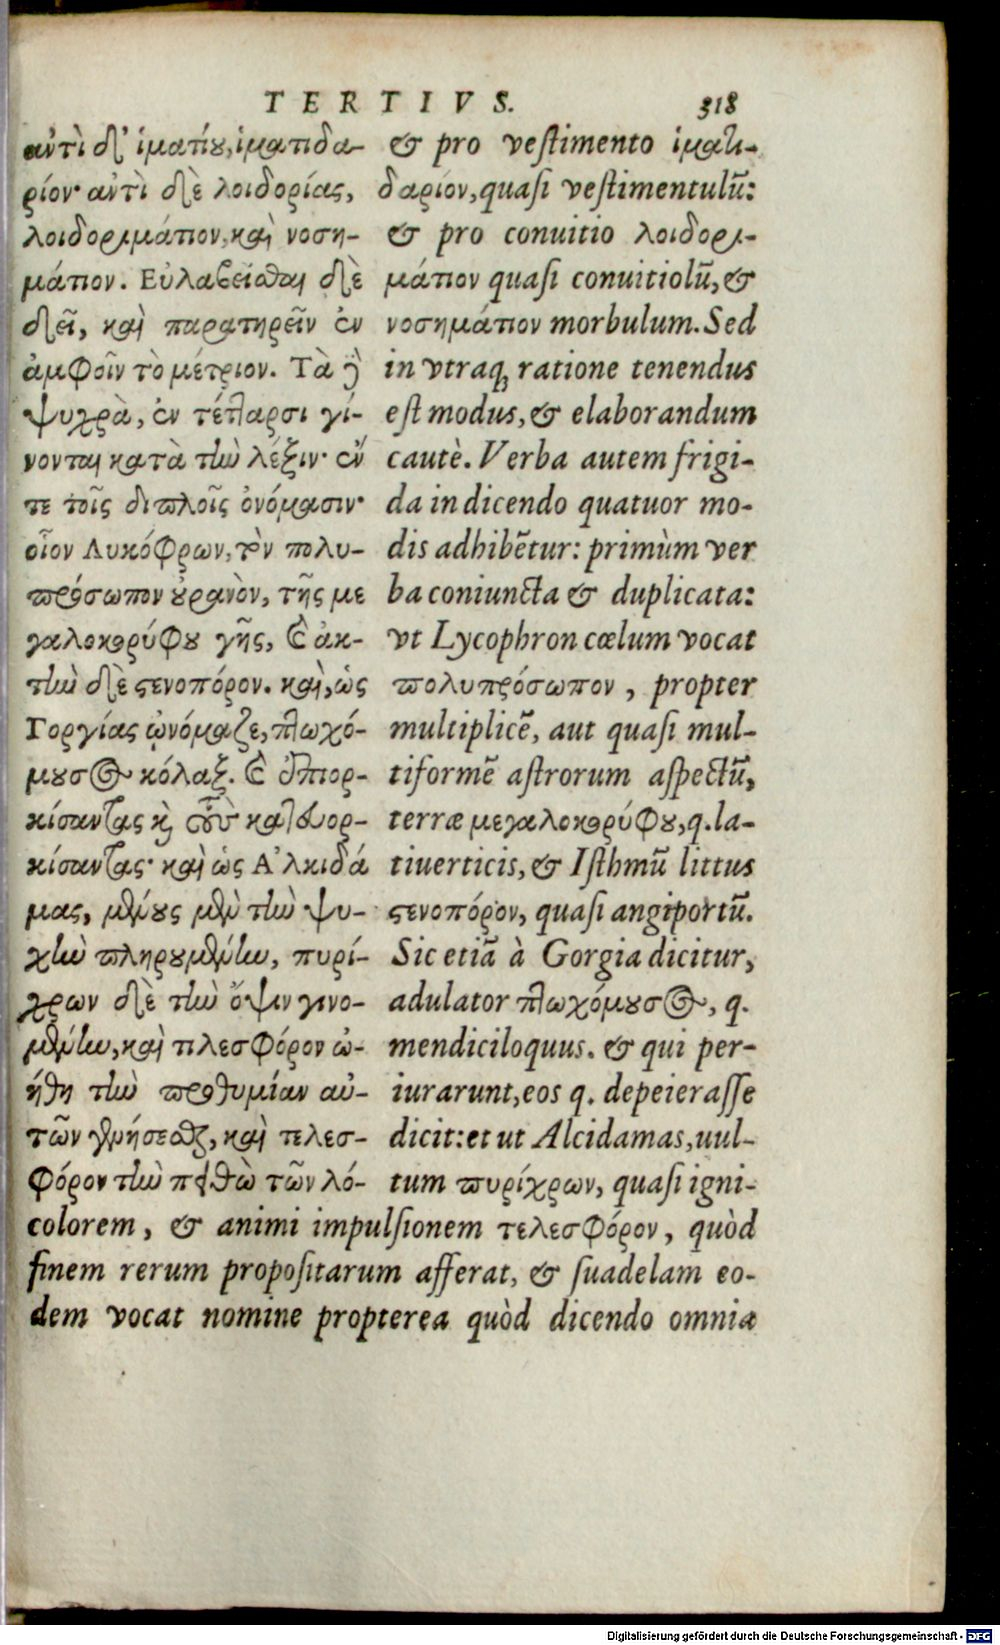 TERTIVS. 318
αὐτὶ δ' ἱματίου, ἱματιδα-
ρίον· αὐτὶ δὲ λοιδορίας,
λοιδορημάτιον, καὶ νοση-
μάτιον. Εὐλαβεῖσθαι δὲ
δεῖ, καὶ παρατηρεῖν ἐν
ἀμφοῖν τὸ μέτριον. Τὰ δὲ
ψυχρὰ, ἐν τέτταρσι γί-
νονται κατὰ τὴν λέξιν· ἔν
τε τοῖς διπλοῖς ὀνόμασιν·
οἷον Λυκόφρων, τὸν πολυ-
πρόσωπον οὐρανὸν, τῆς με
γαλοκορύφου γῆς, καὶ ἀκ-
τὴν δὲ στενοπόρον. καὶ, ὡς
Γοργίας ὠνόμαζε, πτωχό-
μουσος κόλαξ. καὶ ἐπιορ-
κίσαντας καὶ κατευορ-
κίσαντας· καὶ ὡς Ἀλκιδά
μας, μένους μὲν τὴν ψυ-
χὴν πληρουμένην, πυρί-
χρων δὲ τὴν ὄψιν γινο-
μένην, καὶ τελεσφόρον ᾠ-
ήθη τὴν προθυμίαν αὐ-
τῶν γενήσεσθαι, καὶ τελεσ-
φόρον τὴν πειθὼ τῶν λό-
& pro vestimento ἱματι-
δαρίον, quasi vestimentulũ:
& pro conuitio λοιδορι-
μάτιον quasi conuitiolũ, &
νοσημάτιον morbulum. Sed
in vtraq; ratione tenendus
est modus, & elaborandum
cautè. Verba autem frigi-
da in dicendo quatuor mo-
dis adhibẽtur: primùm ver
ba coniuncta & duplicata:
vt Lycophron cœlum vocat
πολυπρόσωπον, propter
multiplicẽ, aut quasi mul-
tiformẽ astrorum aspectũ,
terræ μεγαλοκορύφου, q. la-
tiuerticis, & Isthmũ littus
στενοπόρον, quasi angiportũ.
Sic etiã à Gorgia dicitur,
adulator πτωχόμουσος, q.
mendiciloquus. & qui per-
iurarunt, eos q. depeierasse
dicit: et ut Alcidamas, uul-
tum πυρίχρων, quasi igni-
colorem, & animi impulsionem τελεσφόρον, quòd
finem rerum propositarum afferat, & suadelam eo-
dem vocat nomine propterea quòd dicendo omnia
Digitalisierung gefördert durch die Deutsche Forschungsgemeinschaft - DFG